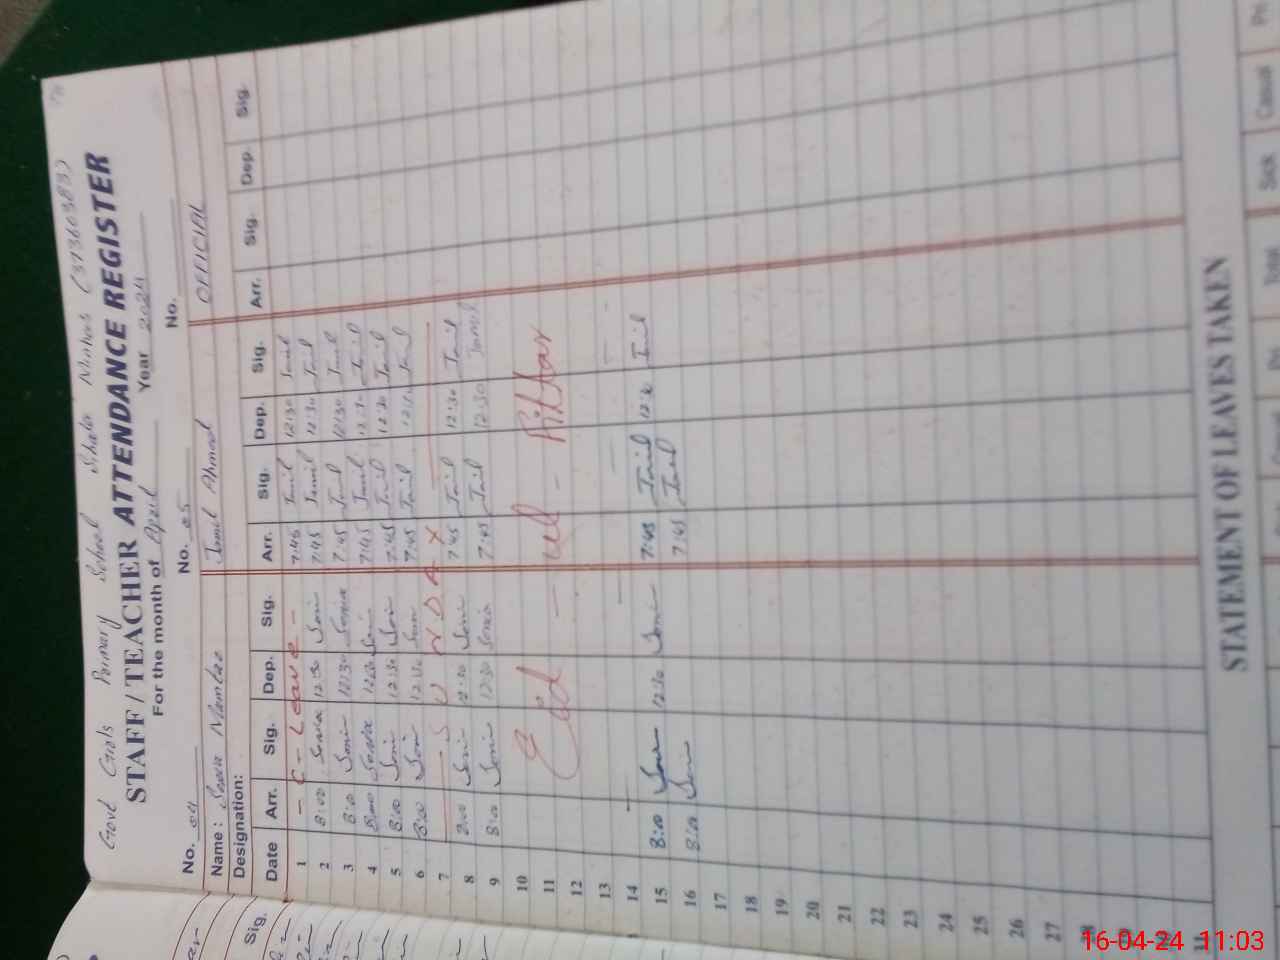 Govt Girls Primary School
STAFF / TEACHER ATTENDANCE REGISTER
For the month of April Year 2024
No. 04 No. 05 No.
Name: Jamil Ahmed OFFICIAL
Designation:
Date Arr. Sig. Dep. Sig. Arr. Sig. Dep. Sig. Arr. Sig. Dep. Sig.
1 - C - Leave - 7:45 Jamil 12:30 Jamil
2 8:00 Sonia 12:30 Soni 7:45 Jamil 12:30 Jamil
3 8:00 Soni 12:30 Sonia 7:45 Jamil 12:30 Jamil
4 8:00 Sonia 12:30 Soni 7:45 Jamil 12:30 Jamil
5 8:00 Soni 12:30 Soni 7:45 Jamil 12:30 Jamil
6 8:00 Soni 12:30 Soni 7:45 Jamil 12:30 Jamil
7 S U N D A Y
8 8:00 Soni 12:30 Soni 7:45 Jamil 12:30 Jamil
9 8:00 Soni 12:30 Sonia 7:45 Jamil 12:30 Jamil
10
11 Eid - ul - Fittar
12
13
14
15 8:00 Soni 12:30 Soni 7:45 Jamil 12:30 Jamil
16 8:00 Soni 7:45 Jamil
17
18
19
20
21
22
23
24
25
26
27
28
29
30
31
STATEMENT OF LEAVES TAKEN
Sick Casual
Sig.
16-04-24 11:03